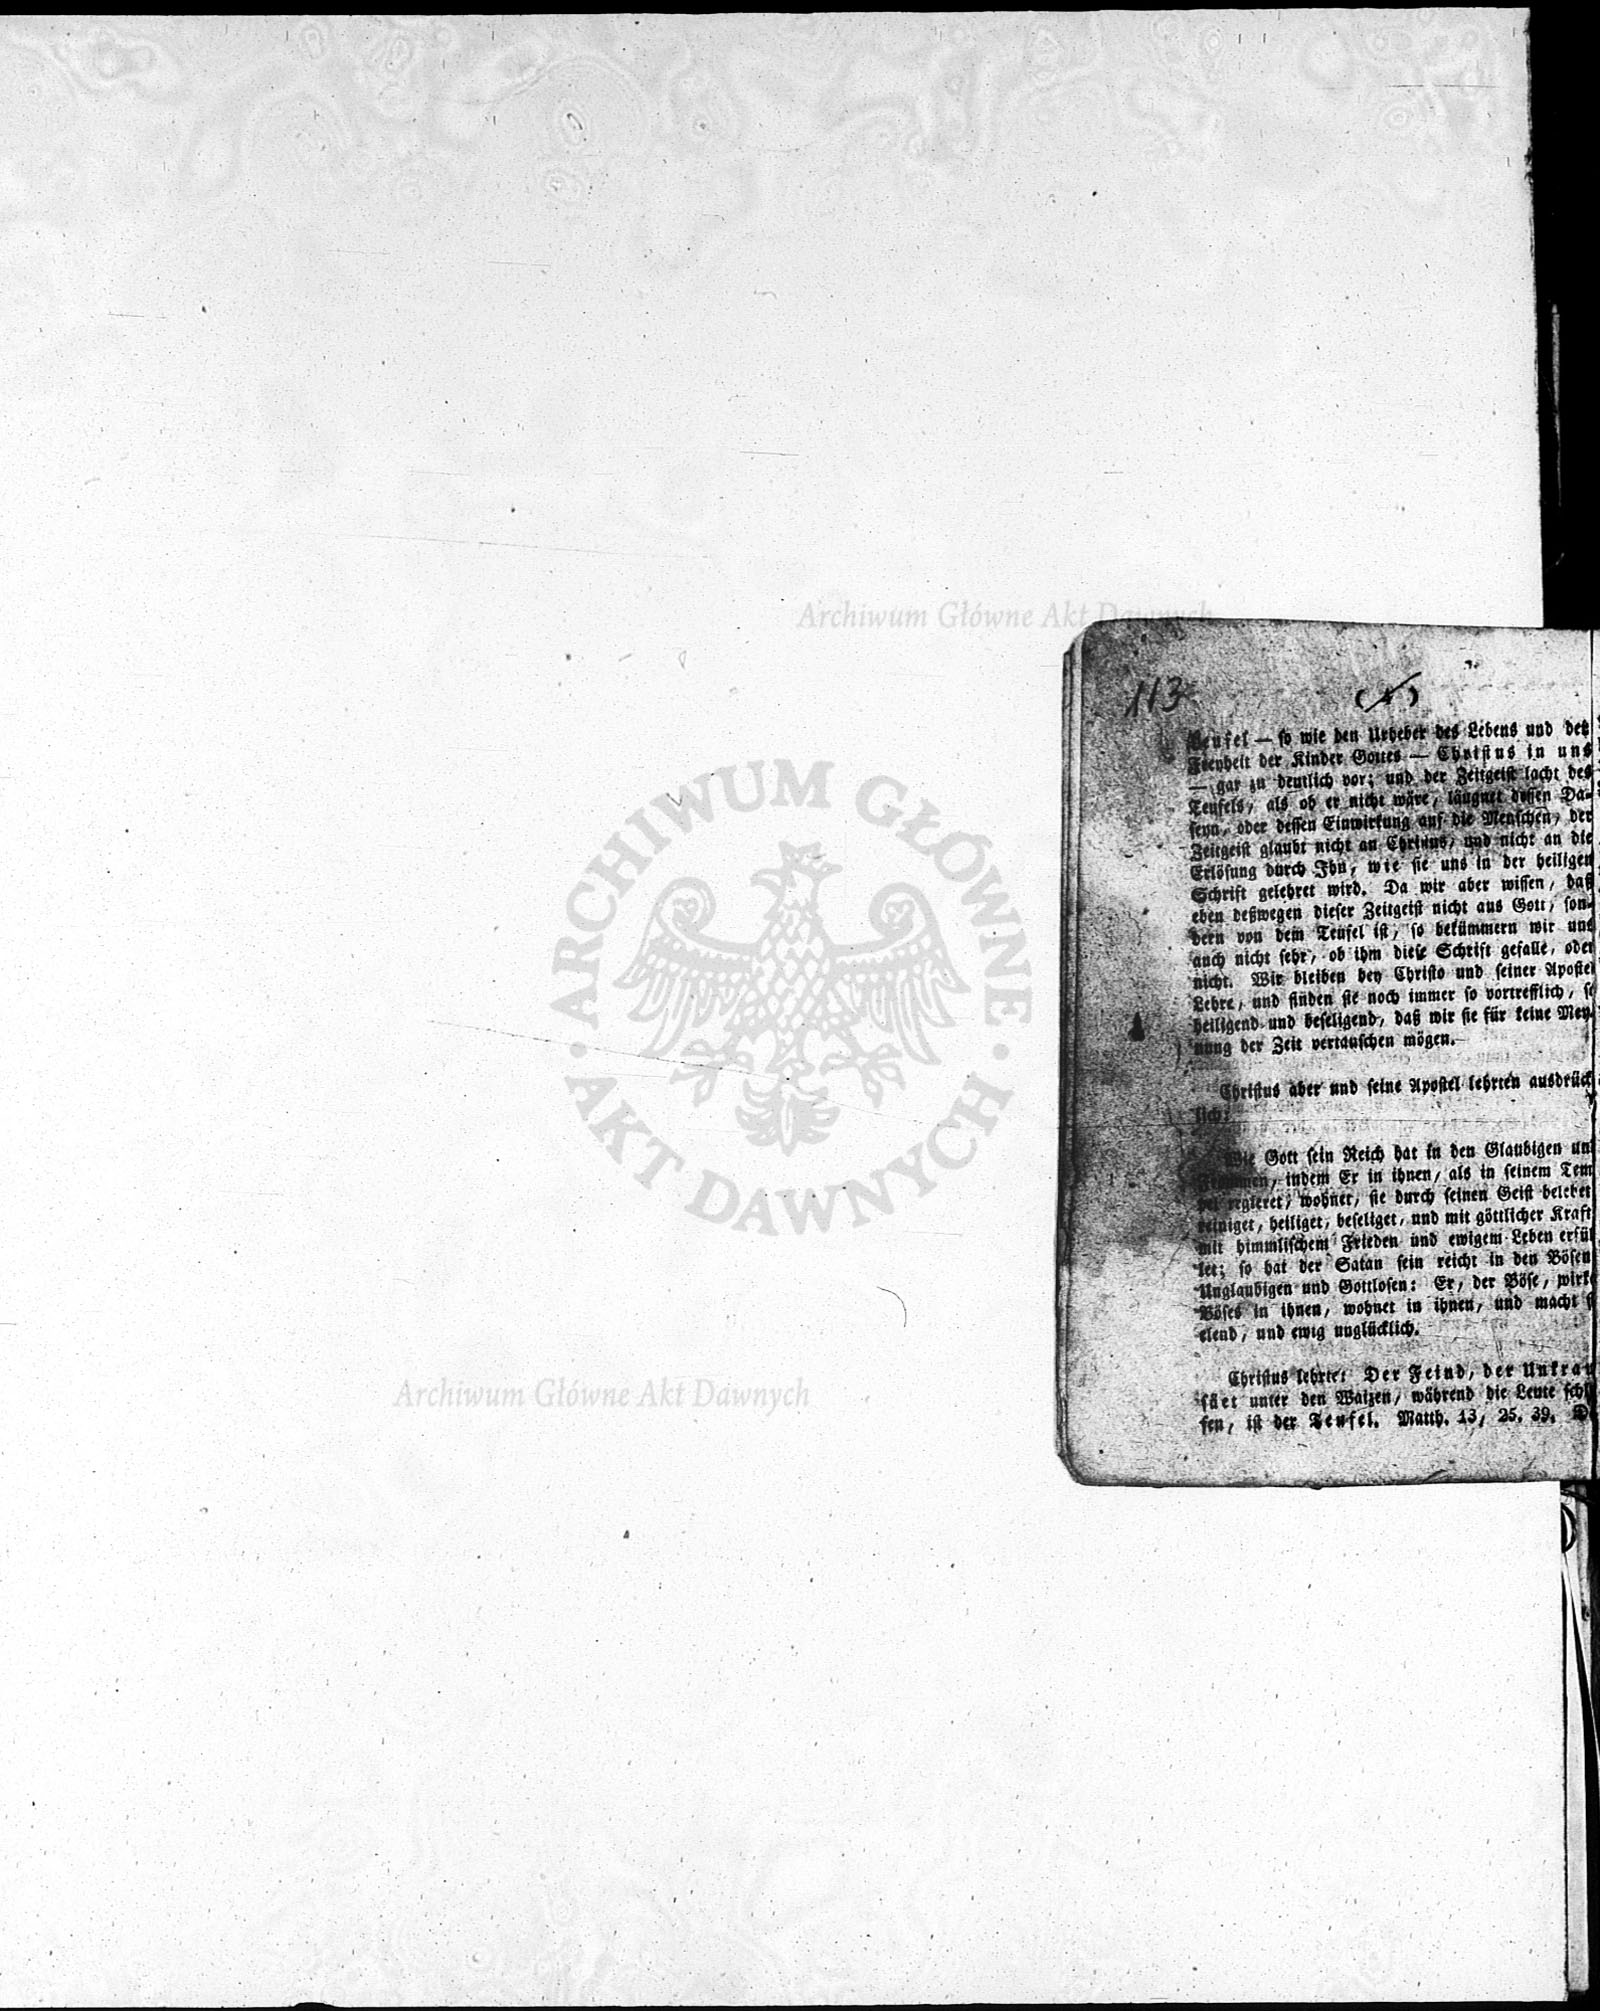 113
( 4 )
Teufel — so wie den Urheber des Lebens und der
Freyheit der Kinder Gottes — Christus in uns
— gar zu deutlich vor; und der Zeitgeist lacht des
Teufels, als ob er nicht wäre, läugnet dessen Da-
seyn, oder dessen Einwirkung auf die Menschen, der
Zeitgeist glaubt nicht an Christus, und nicht an die
Erlösung durch Ihn, wie sie uns in der heiligen
Schrift gelehret wird. Da wir aber wissen, daß
eben deßwegen dieser Zeitgeist nicht aus Gott, son-
dern von dem Teufel ist, so bekümmern wir uns
auch nicht sehr, ob ihm diese Schrift gefalle, oder
nicht. Wir bleiben bey Christo und seiner Apostel
Lehre, und finden sie noch immer so vortrefflich, so
heiligend und beseligend, daß wir sie für keine Mey-
nung der Zeit vertauschen mögen.
Christus aber und seine Apostel lehrten ausdrück
lich:
Wie Gott sein Reich hat in den Glaubigen und
Frommen, indem Er in ihnen, als in seinem Tem
pel regieret, wohnet, sie durch seinen Geist belebet
reiniget, heiliget, beseliget, und mit göttlicher Kraft
mit himmlischem Frieden und ewigem Leben erfül
let; so hat der Satan sein reicht in den Bösen
Unglaubigen und Gottlosen: Er, der Böse, wirke
Böses in ihnen, wohnet in ihnen, und macht s
elend, und ewig unglücklich.
Christus lehrte: Der Feind, der Unkrau
säet unter den Waizen, während die Leute schl
fen, ist der Teufel. Matth. 13, 25. 39. D
Archiwum Główne Akt Dawnych
ARCHIWUM GŁÓWNE
AKT DAWNYCH
Archiwum Główne Akt Dawnych